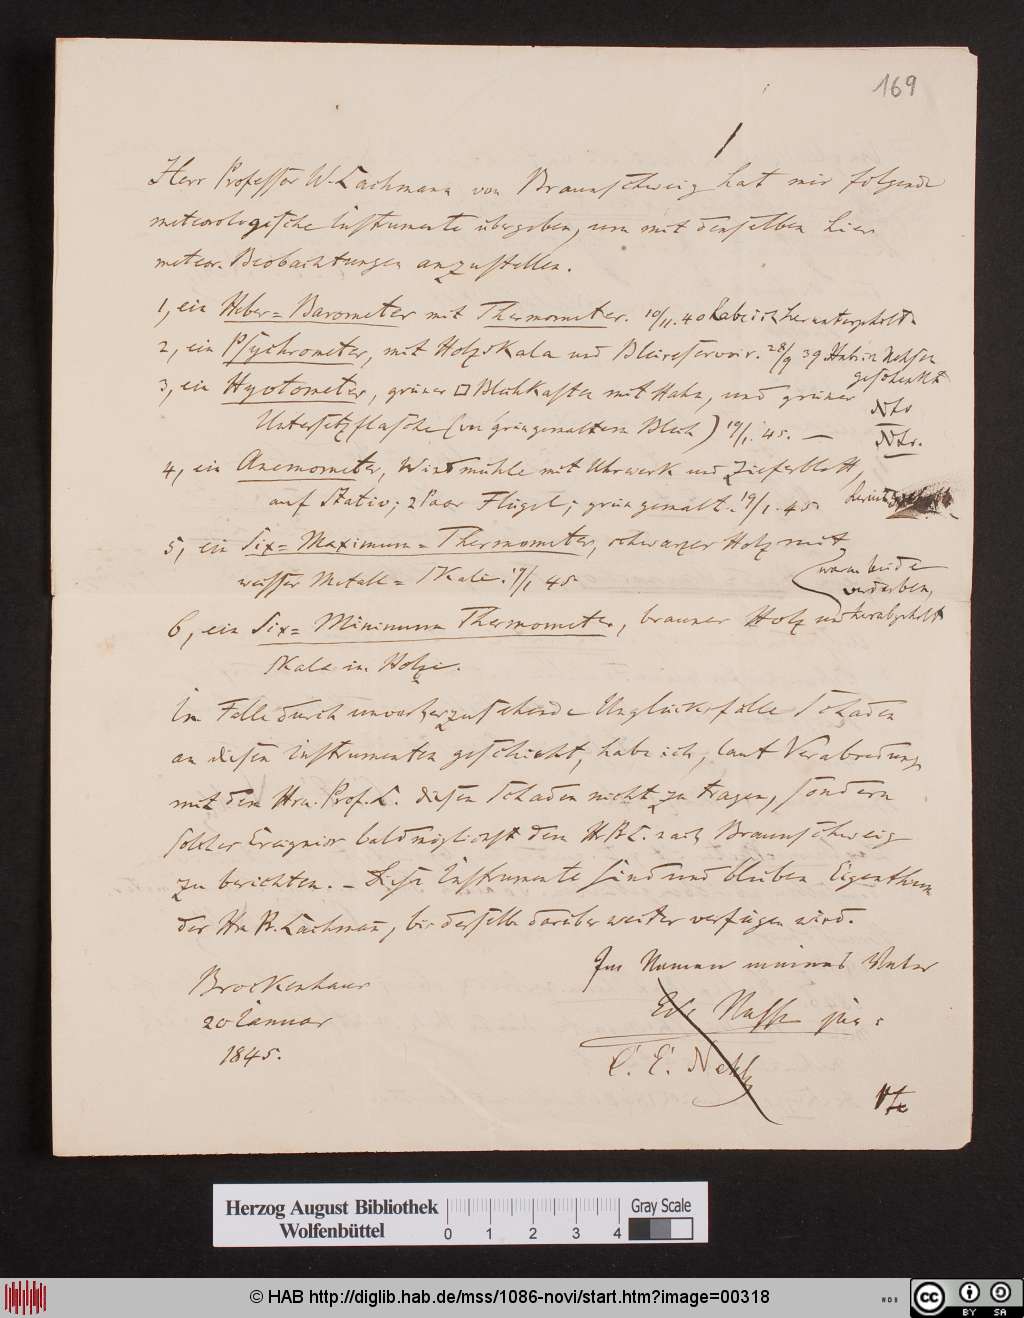 169
Herr Professor W. Lachmann von Braunschweig hat mir folgende
meteorologische Instrumente übergeben, um mit denselben hier
meteor. Beobachtungen anzustellen.
1, ein Heber = Barometer mit Thermometer. 10/11. 40 habe ich heruntergeholt.
2, ein Psychrometer, mit Holzskala und Bleireservoir. 28/9 39
geschenkt
3, ein Hyetometer, grüner □ Blechkasten mit Hahn, und grüner
Untersetzflasche (von grüngemaltem Blech) 19/1. 45. —
4, ein Anemometer, Windmühle mit Uhrwerk und Zieferblatt,
auf Stativ; 2 Paar Flügel; grün gemalt. 19/1. 45.
5, ein Six = Maximum = Thermometer, schwarzer Holz mit
weisser Metall = Skale. 19/1 45
waren beide
verdorben,
6, ein Six = Minimum Thermometer, brauner Holz und herabgeholt
Skala in Holze.
Im Falle durch unvorherzusehende Unglücksfälle Schaden
an diesen Instrumenten geschieht, habe ich, laut Verabredung
mit dem Hrn. Prof. L. diesen Schaden nicht zu tragen, sondern
solches Ereigniss baldmöglichst dem H. Pr. L. nach Braunschweig
zu berichten. – Diese Instrumente sind und bleiben Eigenthum
des Hn Pr. Lachmann, bis derselbe darüber weiter verfügen wird.
Im Namen meines Vater
Brockenhaus
20 Januar
1845.
C. E. Nehse
Herzog August Bibliothek
Wolfenbüttel
0 1 2 3 4
Gray Scale
© HAB http://diglib.hab.de/mss/1086-novi/start.htm?image=00318
WDB
cc
BY SA